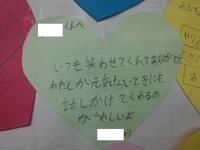 くんへ
いつも笑わせてくれてありがとう
わたしが元気ないときにも
話しかけてくれるの
がうれしいよ
より